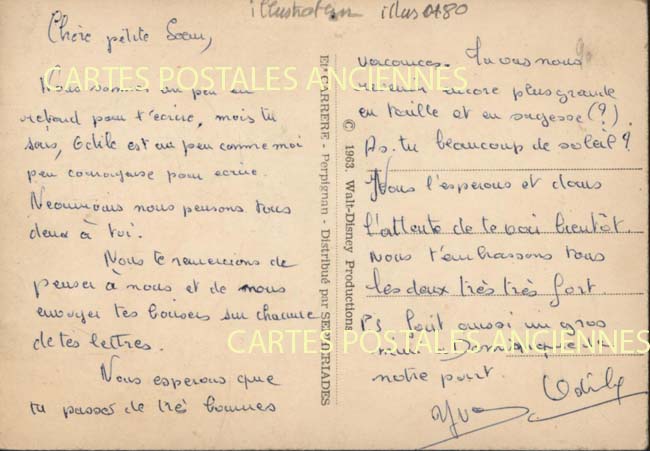 illustrateur illus 0480
Chère petite Soeur,
Nous sommes un peu en
retard pour t'écrire, mais tu
sais, Odile est un peu comme moi
peu courageuse pour écrire.
Néanmoins nous pensons tous
deux à toi.
Nous te remercions de
penser à nous et de nous
envoyer tes baisers sur chacune
de tes lettres.
Nous espérons que
tu passes de très bonnes
Ets CARRERE - Perpignan - Distribué par SEMORIADES
© 1963. Walt-Disney Productions
vacances. Tu vas nous
revenir encore plus grande
en taille et en sagesse (?)
As-tu beaucoup de soleil ?
Nous l'espérons et dans
l'attente de te voir bientôt.
Nous t'embrassons tous
les deux très très fort.
PS. Fait aussi un gros
à Dominique de
notre part.
Yves Odile
CARTES POSTALES ANCIENNES
CARTES POSTALES ANCIENNES